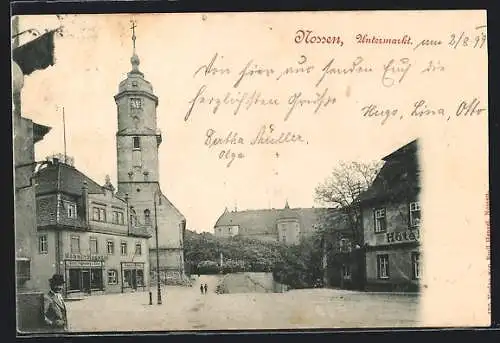 Nossen, Untermarkt. am 2/8. 99
Von hier aus senden Euch die
herzlichsten Grüße
Hugo, Lina, Otto
Bertha Müller,
Olga
HOTEL